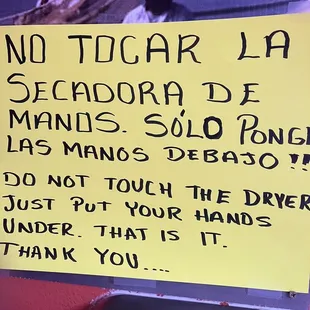 NO TOCAR LA
SECADORA DE
MANOS. SÓLO PONGA
LAS MANOS DEBAJO!!
DO NOT TOUCH THE DRYER
JUST PUT YOUR HANDS
UNDER. THAT IS IT.
THANK YOU....